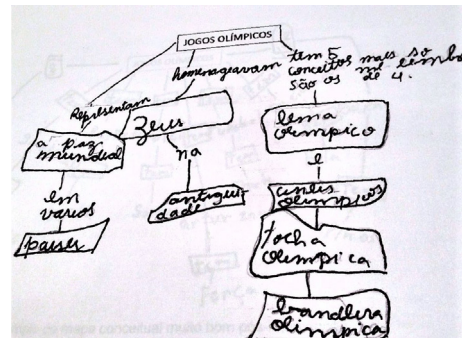 JOGOS OLÍMPICOS
Representam
a paz
mundial
em
varios
paises
homenageavam
Zeus
na
antigui
dade
tem 5
conceitos mais so
me lembro
são os de 4.
lema
olimpico
e
aneis
olimpicos
tocha
olimpica
bandeira
olimpica